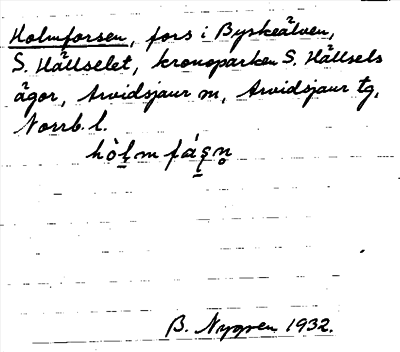 Holmforsen, fors i Byskeälven,
S. Hällselet, kronoparken S. Hällsels
ägor, Arvidsjaur m, Arvidsjaur tg,
Norrb. l.
hòḷm fáʂn̥
B. Nygren 1932.